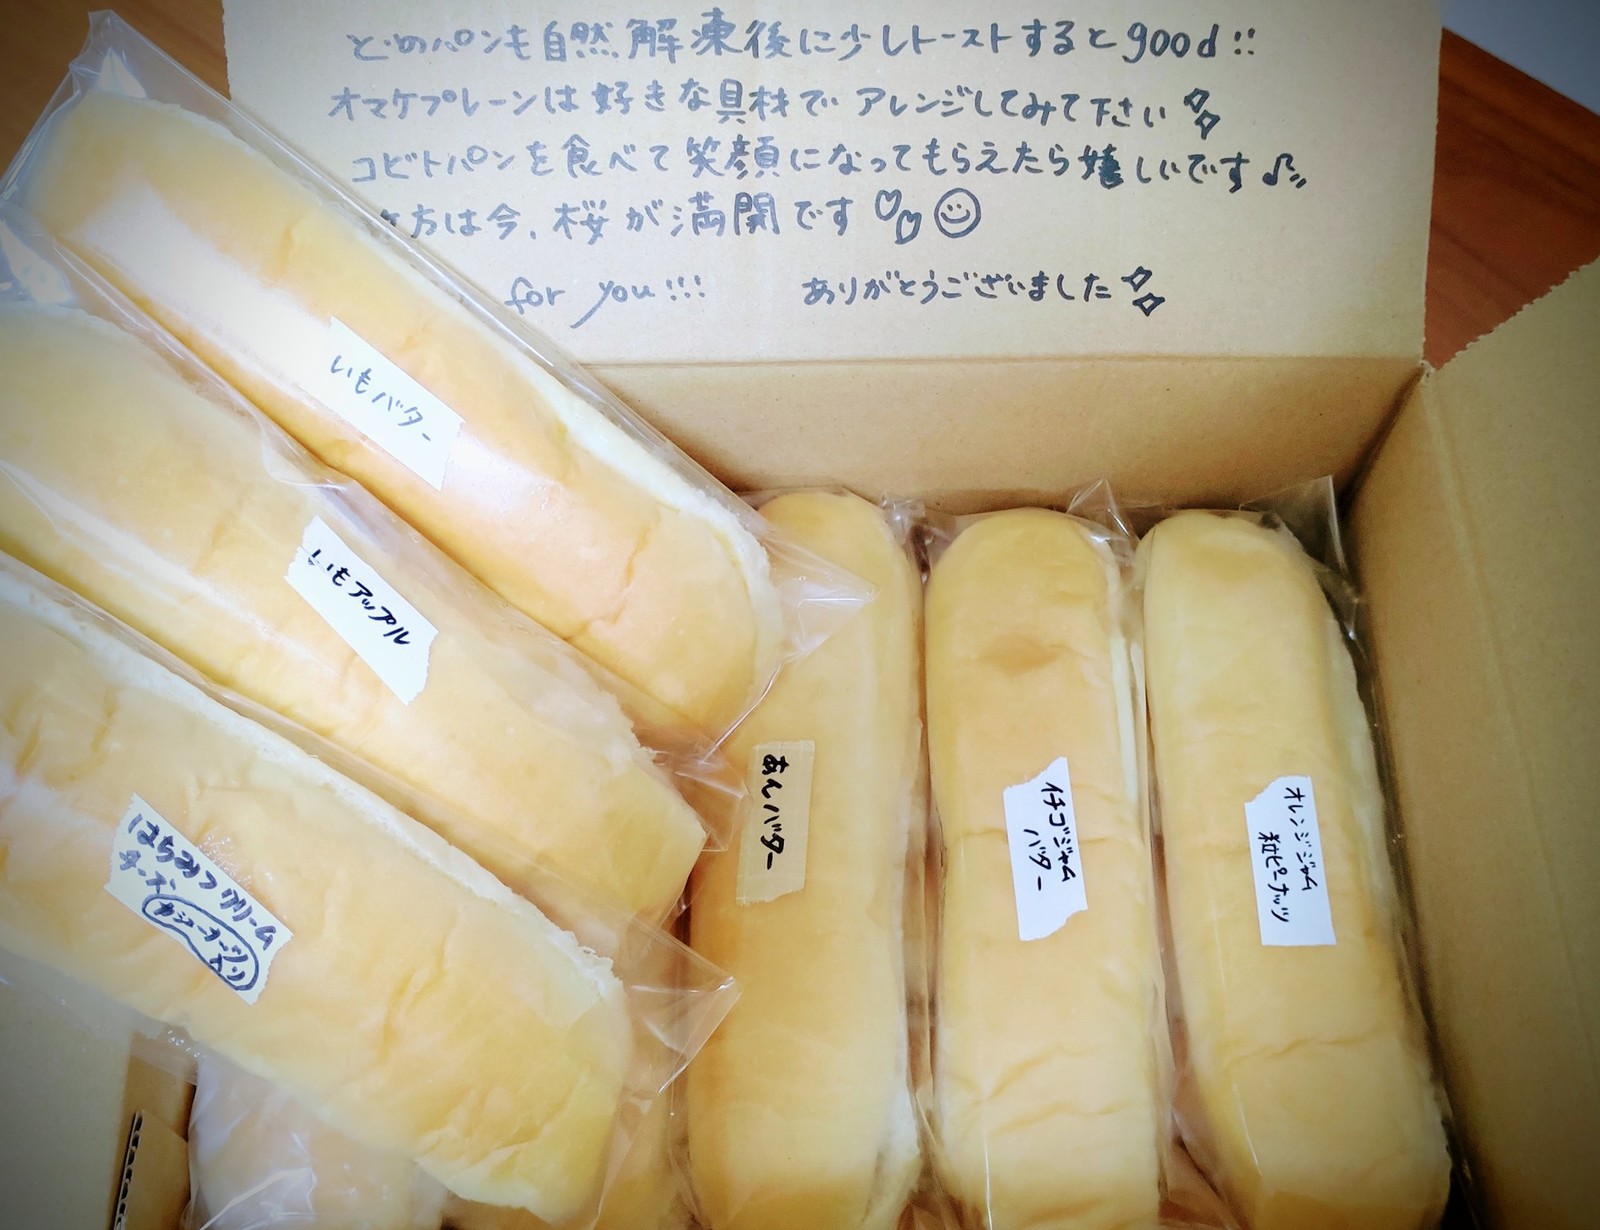 どのパンも自然解凍後に少しトーストするとgood!!
オマケプレーンは好きな具材でアレンジしてみて下さい
コビトパンを食べて笑顔になってもらえたら嬉しいです♪
方は今、桜が満開です
for you!!! ありがとうございました
いもバター
いもアップル
はちみつクリーム
チーズ
カシューナッツ
入り
あんバター
イチゴジャム
バター
オレンジジャム
粒ピーナッツ